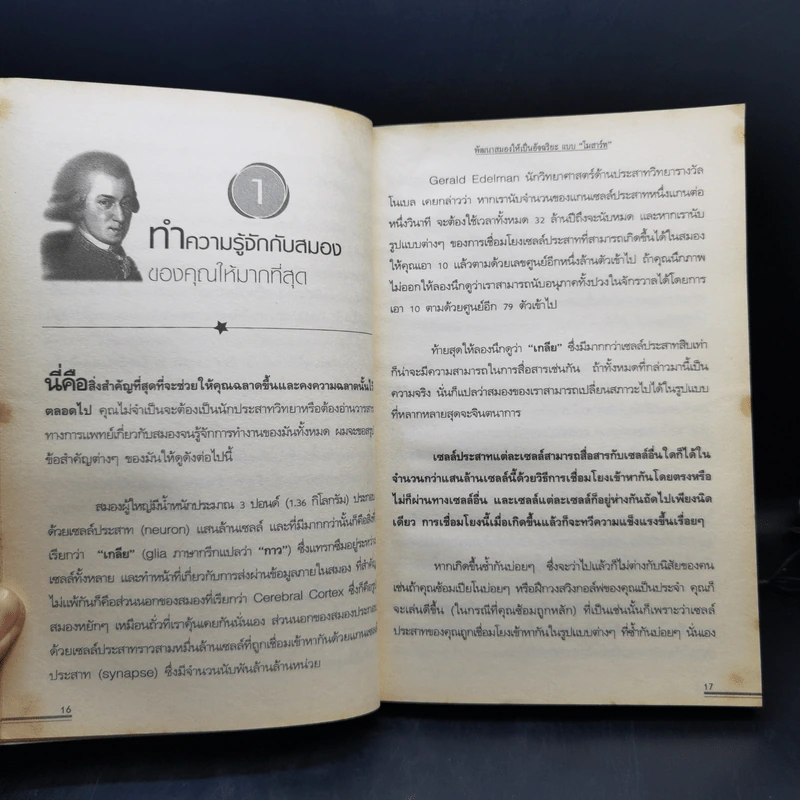 1
ทำความรู้จักกับสมอง
ของคุณให้มากที่สุด
นี่คือสิ่งสำคัญที่สุดที่จะช่วยให้คุณฉลาดขึ้นและคงความฉลาดนั้นไว้
ตลอดไป คุณไม่จำเป็นจะต้องเป็นนักประสาทวิทยาหรือต้องอ่านวารสาร
ทางการแพทย์เกี่ยวกับสมองจนรู้จักการทำงานของมันทั้งหมด ผมจะขอสรุป
ข้อสำคัญต่างๆ ของมันให้ดูดังต่อไปนี้
สมองผู้ใหญ่มีน้ำหนักประมาณ 3 ปอนด์ (1.36 กิโลกรัม) ประกอบ
ด้วยเซลล์ประสาท (neuron) แสนล้านเซลล์ และที่มีมากกว่านั้นก็คือสิ่งที่
เรียกว่า “เกลีย” (glia ภาษากรีกแปลว่า “กาว”) ซึ่งแทรกซึมอยู่ระหว่าง
เซลล์ทั้งหลาย และทำหน้าที่เกี่ยวกับการส่งผ่านข้อมูลภายในสมอง ที่สำคัญ
ไม่แพ้กันก็คือส่วนนอกของสมองที่เรียกว่า Cerebral Cortex ซึ่งก็คือ
สมองหยักๆ เหมือนถั่วที่เราคุ้นเคยกันนั่นเอง ส่วนนอกของสมองประกอบ
ด้วยเซลล์ประสาทราวสามหมื่นล้านเซลล์ที่ถูกเชื่อมเข้าหากันด้วยแกนเซลล์
ประสาท (synapse) ซึ่งมีจำนวนนับพันล้านล้านหน่วย
16
พัฒนาสมองให้เป็นอัจฉริยะ แบบ “โมสาร์ท”
Gerald Edelman นักวิทยาศาสตร์ด้านประสาทวิทยารางวัล
โนเบล เคยกล่าวว่า หากเรานับจำนวนของแกนเซลล์ประสาทหนึ่งแกนต่อ
หนึ่งวินาที จะต้องใช้เวลาทั้งหมด 32 ล้านปีถึงจะนับหมด และหากเรานับ
รูปแบบต่างๆ ของการเชื่อมโยงเซลล์ประสาทที่สามารถเกิดขึ้นได้ในสมอง
ให้คุณเอา 10 แล้วตามด้วยเลขศูนย์อีกหนึ่งล้านตัวเข้าไป ถ้าคุณนึกภาพ
ไม่ออกให้ลองนึกดูว่าเราสามารถนับอนุภาคทั้งปวงในจักรวาลได้โดยการ
เอา 10 ตามด้วยศูนย์อีก 79 ตัวเข้าไป
ท้ายสุดให้ลองนึกดูว่า “เกลีย” ซึ่งมีมากกว่าเซลล์ประสาทสิบเท่า
ก็น่าจะมีความสามารถในการสื่อสารเช่นกัน ถ้าทั้งหมดที่กล่าวมานี้เป็น
ความจริง นั่นก็แปลว่าสมองของเราสามารถเปลี่ยนสภาวะไปได้ในรูปแบบ
ที่หลากหลายสุดจะจินตนาการ
เซลล์ประสาทแต่ละเซลล์สามารถสื่อสารกับเซลล์อื่นใดก็ได้ใน
จำนวนกว่าแสนล้านเซลล์นี้ด้วยวิธีการเชื่อมโยงเข้าหากันโดยตรงหรือ
ไม่ก็ผ่านทางเซลล์อื่น และเซลล์แต่ละเซลล์ก็อยู่ห่างกันถัดไปเพียงนิด
เดียว การเชื่อมโยงนี้เมื่อเกิดขึ้นแล้วก็จะทวีความแข็งแรงขึ้นเรื่อยๆ
หากเกิดขึ้นซ้ำกันบ่อยๆ ซึ่งจะว่าไปแล้วก็ไม่ต่างกับนิสัยของคน
เช่นถ้าคุณซ้อมเปียโนบ่อยๆ หรือฝึกวงสวิงกอล์ฟของคุณเป็นประจำ คุณก็
จะเล่นดีขึ้น (ในกรณีที่คุณซ้อมถูกหลัก) ที่เป็นเช่นนั้นก็เพราะว่าเซลล์
ประสาทของคุณถูกเชื่อมโยงเข้าหากันในรูปแบบต่างๆ ที่ซ้ำกันบ่อยๆ นั่นเอง
17